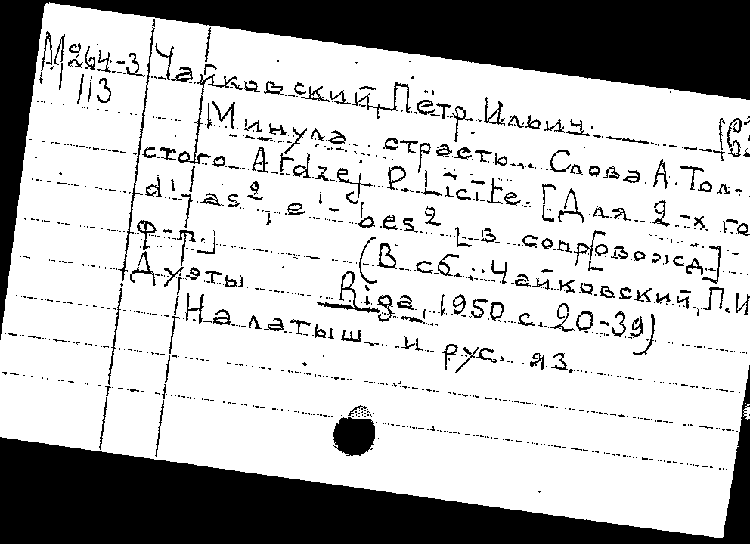 М264-3 Чайковский, Пётр Ильич.
113
Минула страсть... Слова А. Тол-
стого Atdzej P. Līcīte. [Для 2-х го
d'-as², e'-bes², в сопр[овожд.]
ф-п.] (В сб.: Чайковский, П.И
Дуэты Rīga, 1950 с. 20-39)
На латыш. и рус. яз.